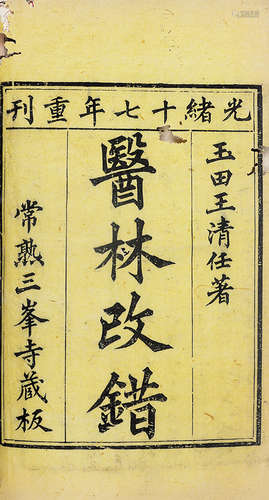 光緒十七年重刊
玉田王清任著
醫林改錯
常熟三峯寺藏板